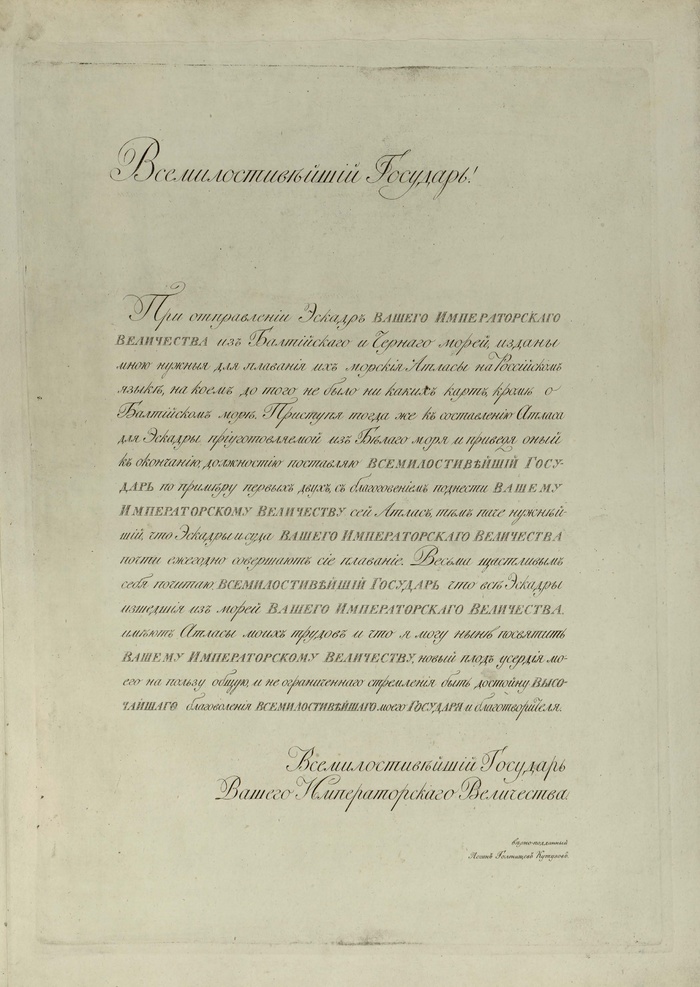 Всемилостивѣйшій Государь!
При отправленіи Эскадръ ВАШЕГО ИМПЕРАТОРСКАГО
ВЕЛИЧЕСТВА изъ Балтійскаго и Чернаго морей, изданы
мною нужныя для плаванія ихъ морскія Атласы на Россійскомъ
языкѣ, на коемъ до того не было ни какихъ картъ, кромѣ о
Балтійскомъ морѣ. Приступя тогда же къ составленію Атласа
для Эскадры пріуготовляемой изъ Бѣлаго моря и приведя оный
къ окончанію, должностію поставляю ВСЕМИЛОСТИВѢЙШІЙ ГОСУ-
ДАРЬ по примѣру первыхъ двухъ, съ благоговеніемъ поднести ВАШЕМУ
ИМПЕРАТОРСКОМУ ВЕЛИЧЕСТВУ сей Атласъ, тѣмъ паче нужнѣй-
шій, что Эскадры и суда ВАШЕГО ИМПЕРАТОРСКАГО ВЕЛИЧЕСТВА
почти ежегодно совершаютъ сіе плаваніе. Весьма щастливымъ
себя почитаю, ВСЕМИЛОСТИВѢЙШІЙ ГОСУДАРЬ что всѣ Эскадры
изшедшія изъ морей ВАШЕГО ИМПЕРАТОРСКАГО ВЕЛИЧЕСТВА,
имѣютъ Атласы моихъ трудовъ и что я могу нынѣ посвятить
ВАШЕМУ ИМПЕРАТОРСКОМУ ВЕЛИЧЕСТВУ, новый плодъ усердія мо-
его на пользу общую, и не ограниченнаго стремленія быть достойну ВЫСО-
ЧАЙШАГО благоволенія ВСЕМИЛОСТИВѢЙШАГО моего ГОСУДАРЯ и благотворителя.
Всемилостивѣйшій Государь
Вашего Императорскаго Величества
вѣрно-подданный
Логинъ Голенищевъ Кутузовъ